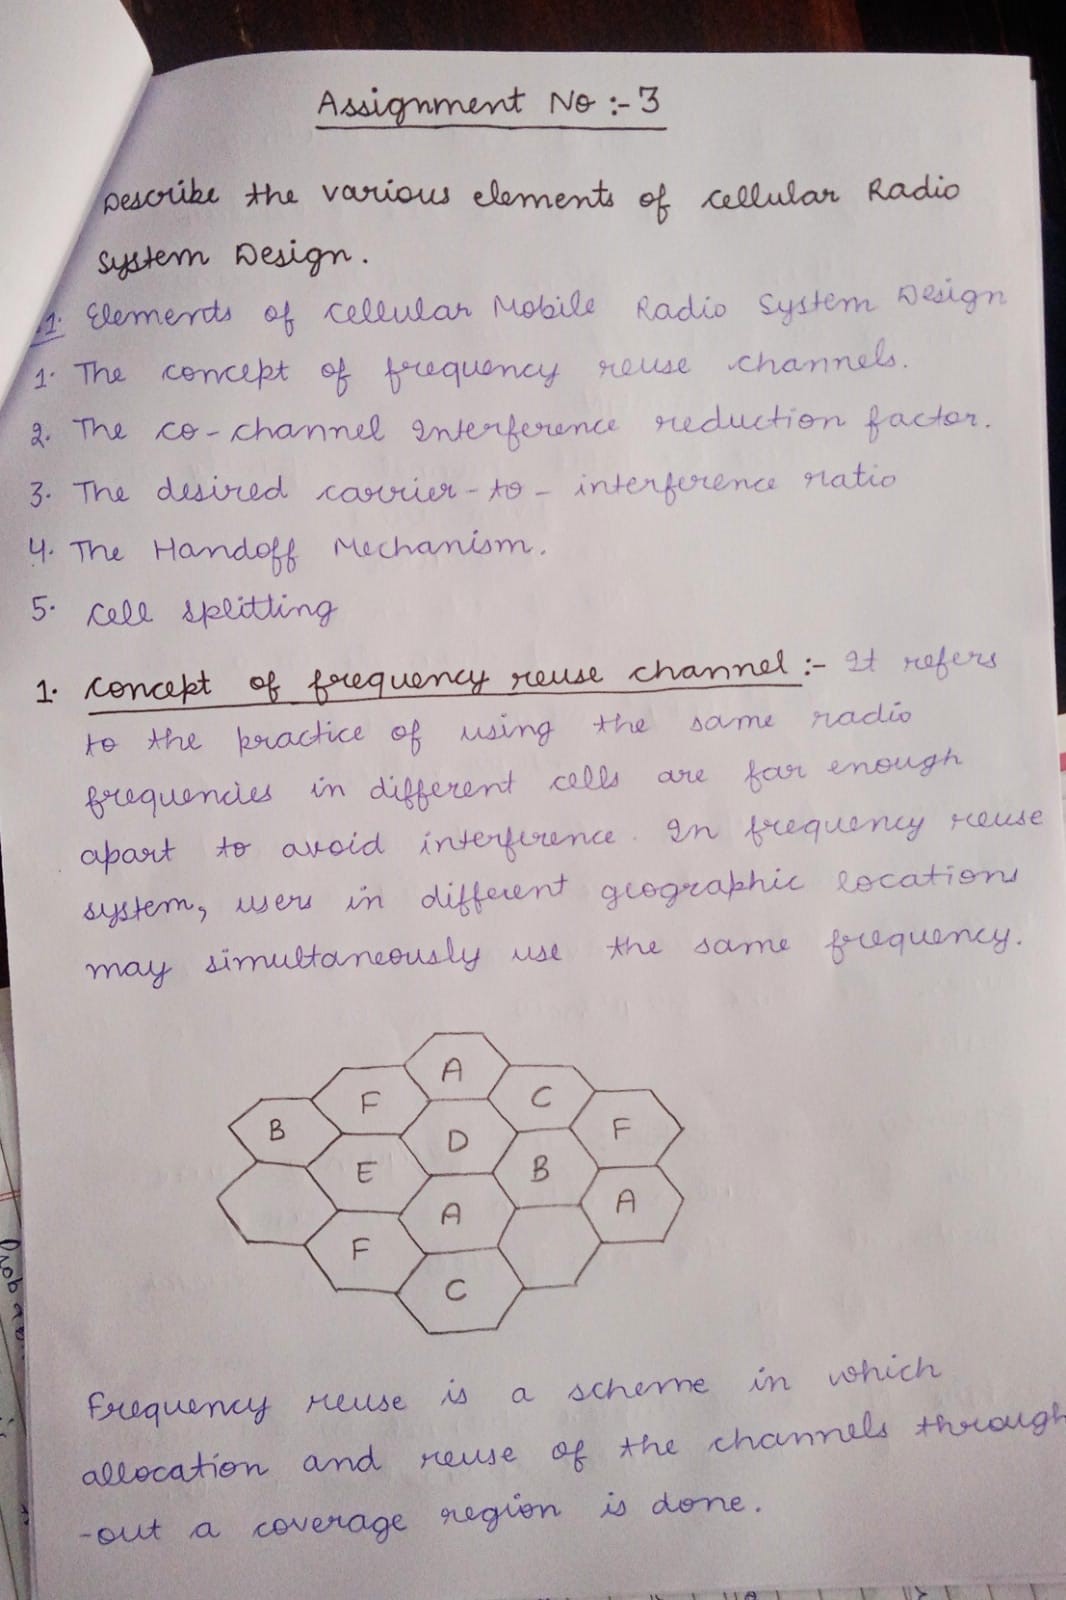 Assignment No :- 3
Describe the various elements of cellular Radio
System Design.
1. Elements of cellular Mobile Radio System Design
1. The concept of frequency reuse channels.
2. The co-channel Interference reduction factor.
3. The desired carrier-to-interference ratio
4. The Handoff Mechanism.
5. cell splitting
1. concept of frequency reuse channel :- It refers
to the practice of using the same radio
frequencies in different cells are far enough
apart to avoid interference. In frequency reuse
system, users in different geographic locations
may simultaneously use the same frequency.
A
F C
B D F
E B
A A
F
C
Frequency reuse is a scheme in which
allocation and reuse of the channels through
-out a coverage region is done.